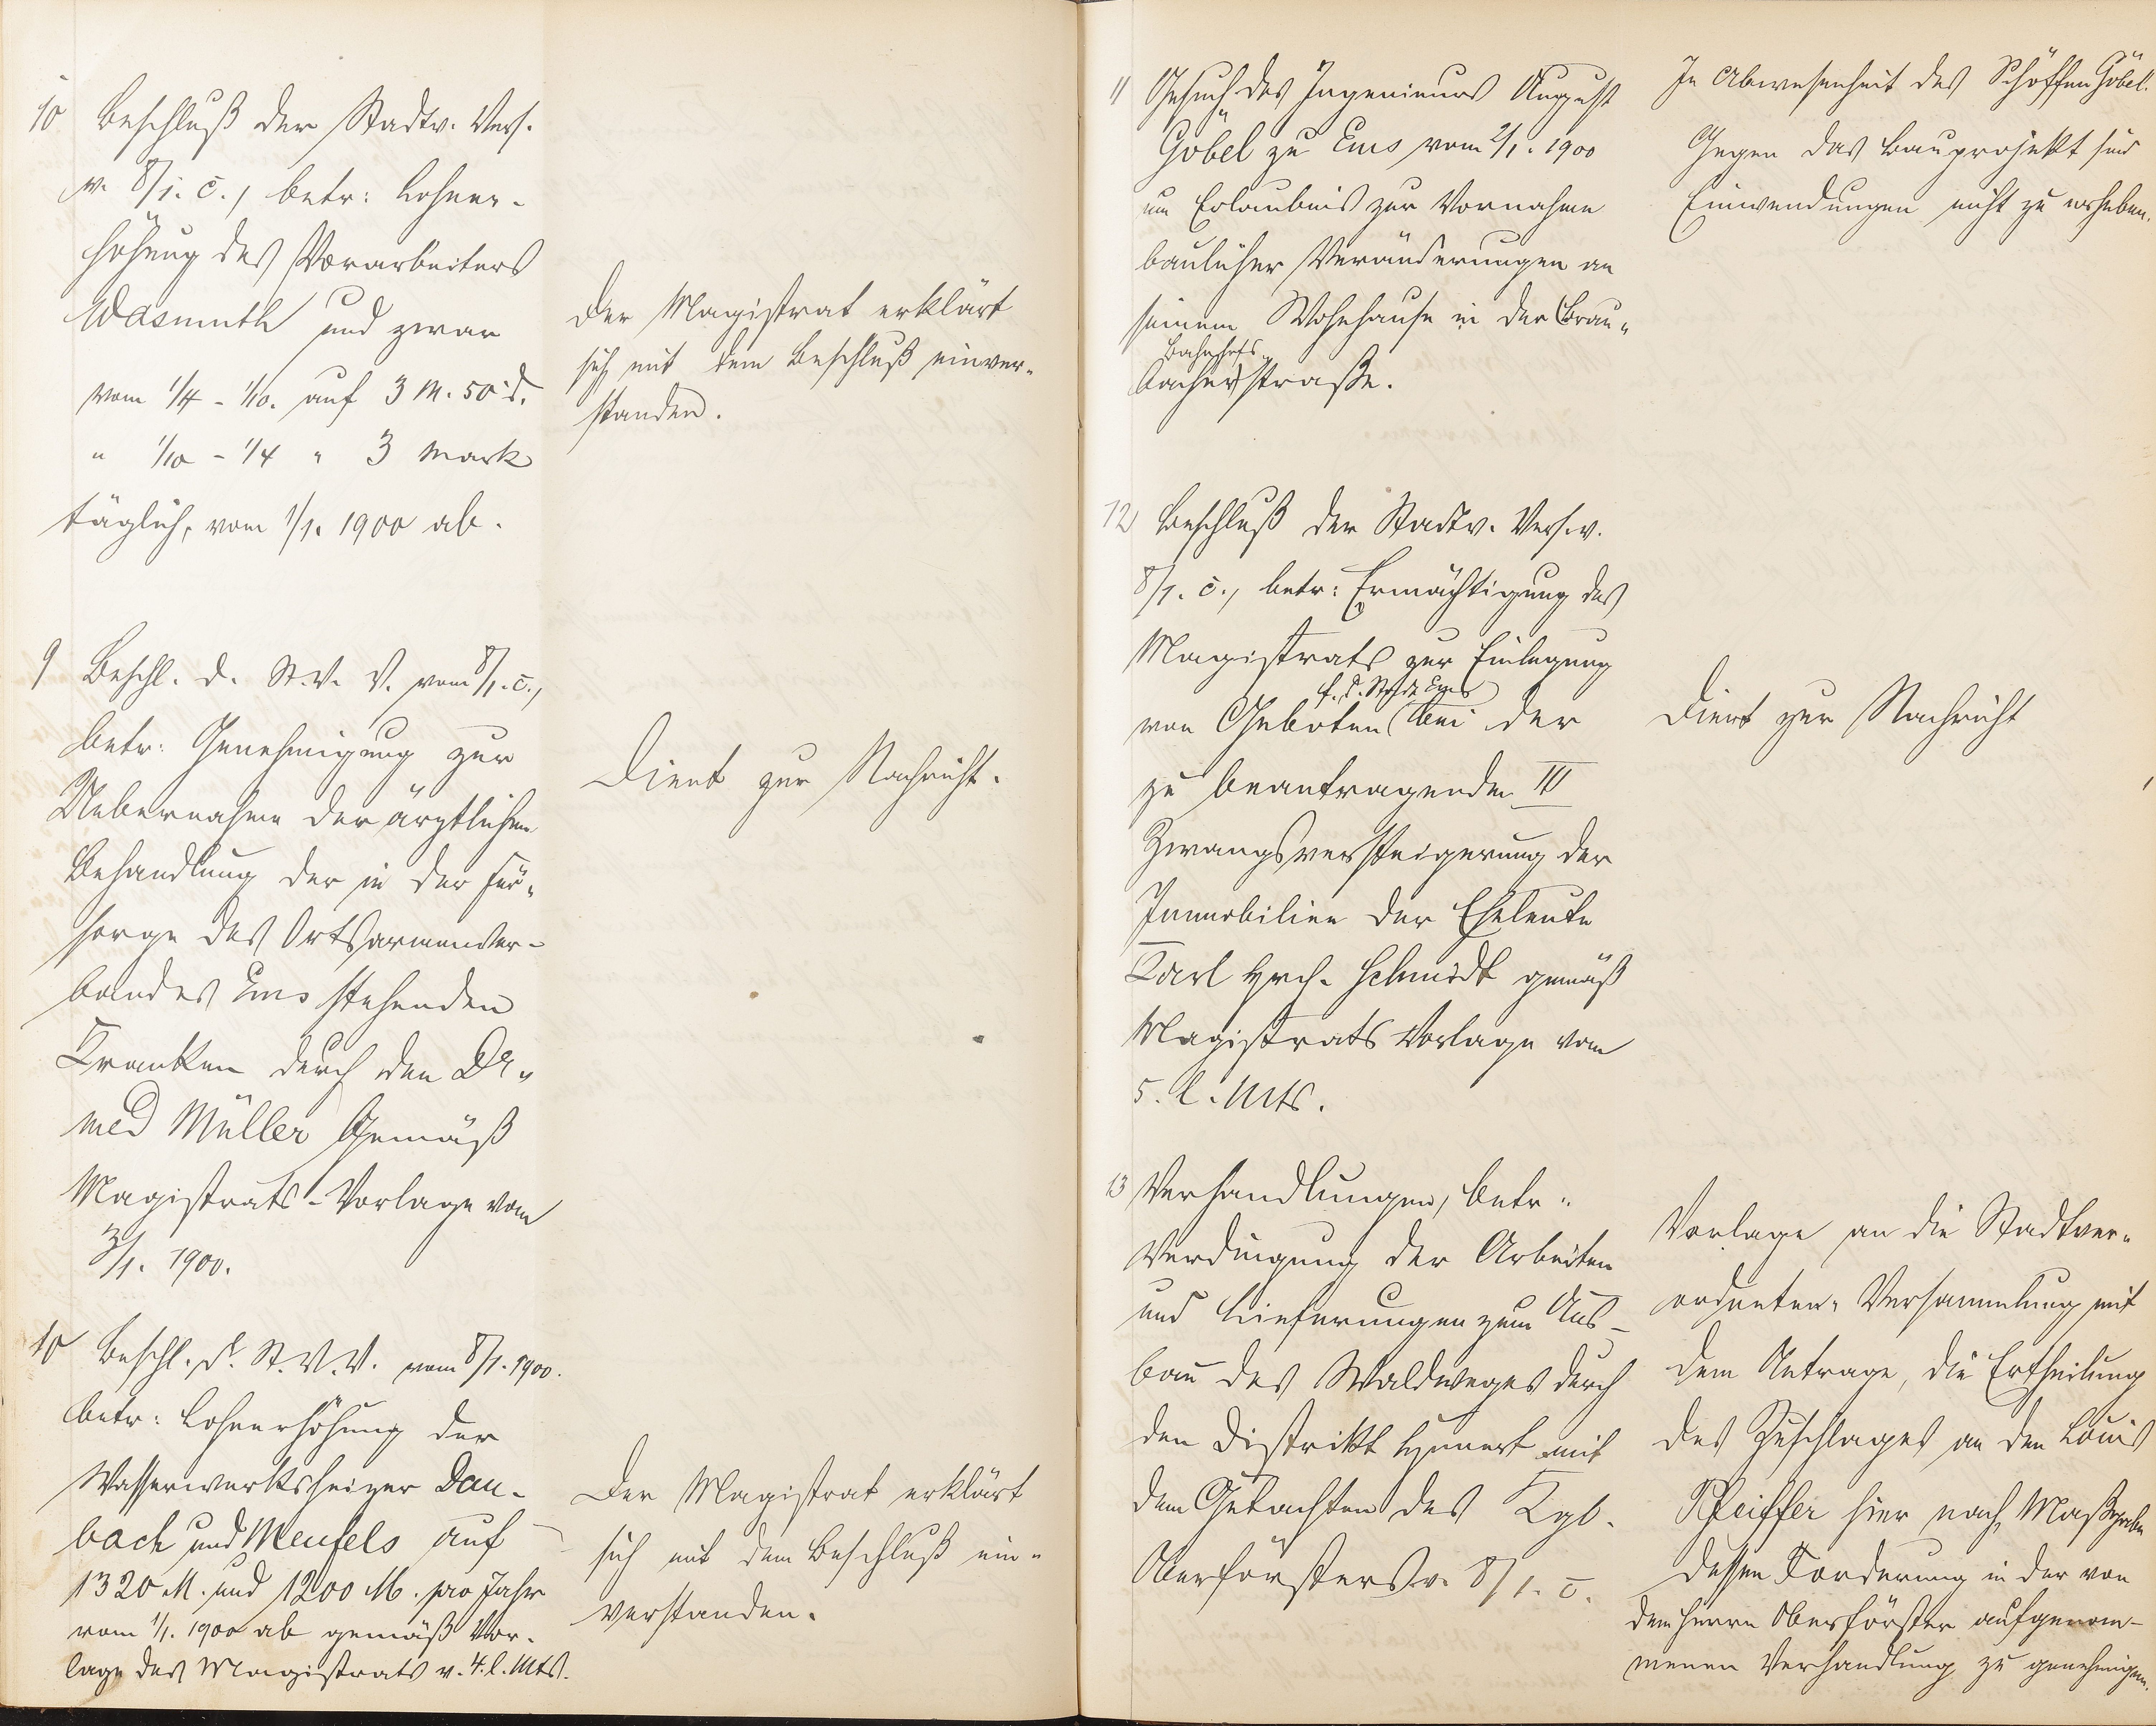 10 Beschluß der Stadtv. Vers.
v. 8/1. c., betr: Lohner-
höhung des Vorarbeiters
Wasmuth und zwar
vom 1/4 - 1/10. auf 3 M. 50 d.
" 1/10 - 1/4 " 3 Mark
täglich, vom 1/1. 1900 ab.
Der Magistrat erklärt
sich mit dem Beschluß einver-
standen.
9 Beschl. d. St. V. V. vom 8/1. c.,
betr: Genehmigung zur
Uebernahme der ärztlichen
Behandlung der in der Für-
sorge des Ortsarmenver-
bandes Ems stehenden
Kranken durch den Dr.
med Müller Gemäß
Magistrats-Vorlage vom
3/1. 1900.
Dient zur Nachricht.
10 Beschl. d. St. V. V. vom 8/1. 1900.
betr: Lohnerhöhung der
Wasserwerksheizer Dau-
bach und Meufels auf
1320 M. und 1200 M. pro Jahr
vom 1/1. 1900 ab gemäß Vor-
lage des Magistrats v. 4. l. Mts.
Der Magistrat erklärt
sich mit dem Beschluß ein-
verstanden.
11 Gesuch des Ingenieurs August
Göbel zu Ems vom 2/1. 1900
um Erlaubnis zur Vornahme
baulicher Veränderungen an
seinem Wohnhause in der Brau-
Bahnhofs-
bacherstraße.
In Abwesenheit des Schöffen Göbel.
Gegen das Bauprojekt sind
Einwendungen nicht zu erheben.
12 Beschluß der Stadtv. Vers. v.
8/1. c., betr: Ermächtigung des
Magistrats zur Einlegung
f. d. Stadt Ems
von Geboten bei der
zu beantragenden III
Zwangsversteigerung der
Immobilien der Eheleute
Karl Hrch. Schmidt gemäß
Magistrats Vorlage vom
5. l. Mts.
Dient zur Nachricht
13 Verhandlungen, betr:
Verdingung der Arbeiten
und Lieferungen zum Aus-
bau des Waldweges durch
den Distrikt Hunert mit
dem Gutachten des Kgl.
Oberförsters v. 8/1. c.
Vorlage an die Stadtver-
ordneten-Versammlung mit
dem Antrage, die Ertheilung
des Zuschlages an den Louis
Pfeiffer hier nach Maßgabe
dessen Forderung in der von
dem Herrn Oberförster aufgenom-
menen Verhandlung zu genehmigen.